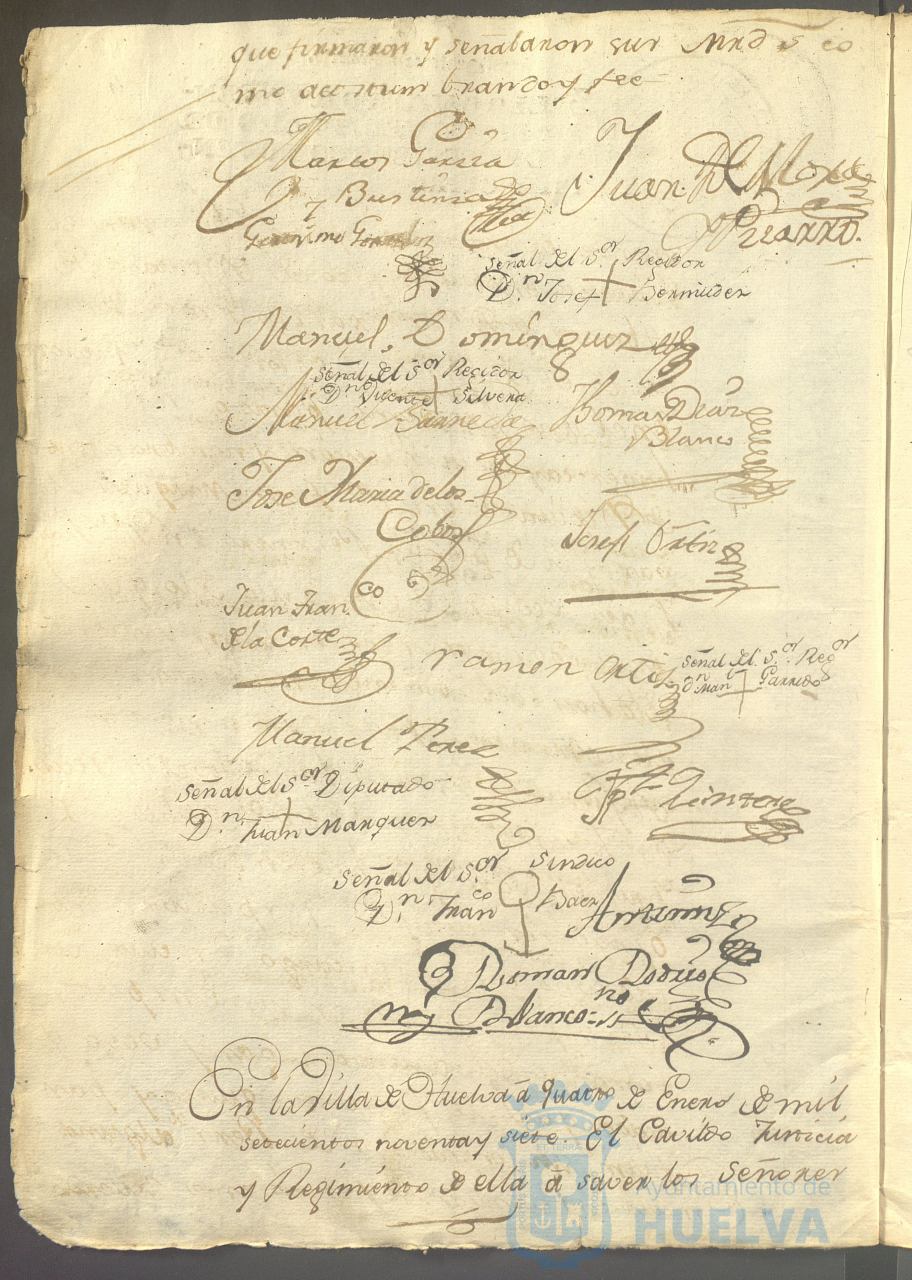 que firmaron y señalaron sus Mrd.s co
mo acostumbran doy fee
Marcos Garcia
y Bustinza
Juan De Mora
y Pizarro.
Geronimo Gonzalez
señal del S.or Regidor
D.n Josef Bermudez
Manuel Dominguez
señal del S.or Regidor
D.n Vicente Silvera
Manuel Barreda
Thomas Diaz
Blanco
Jose Maria de los
Cobos
Josef Ortiz
Juan Fran.co
de la Corte
ramon ortiz
señal del S.or Reg.or
d.n Man.l Garrido
Manuel Perez
señal del S.or Diputado
D.n Juan Marquez
Quintero
señal del S.or Sindico
D.n Fran.co Baez
Ante mi
Roman Rodrig
Blanco
En la Villa de Huelva â quatro de Enero de mil
setecientos noventa y siete. El Cavildo Justicia
y Regimiento de ella â saver los Señores
Ayuntamiento de
HUELVA